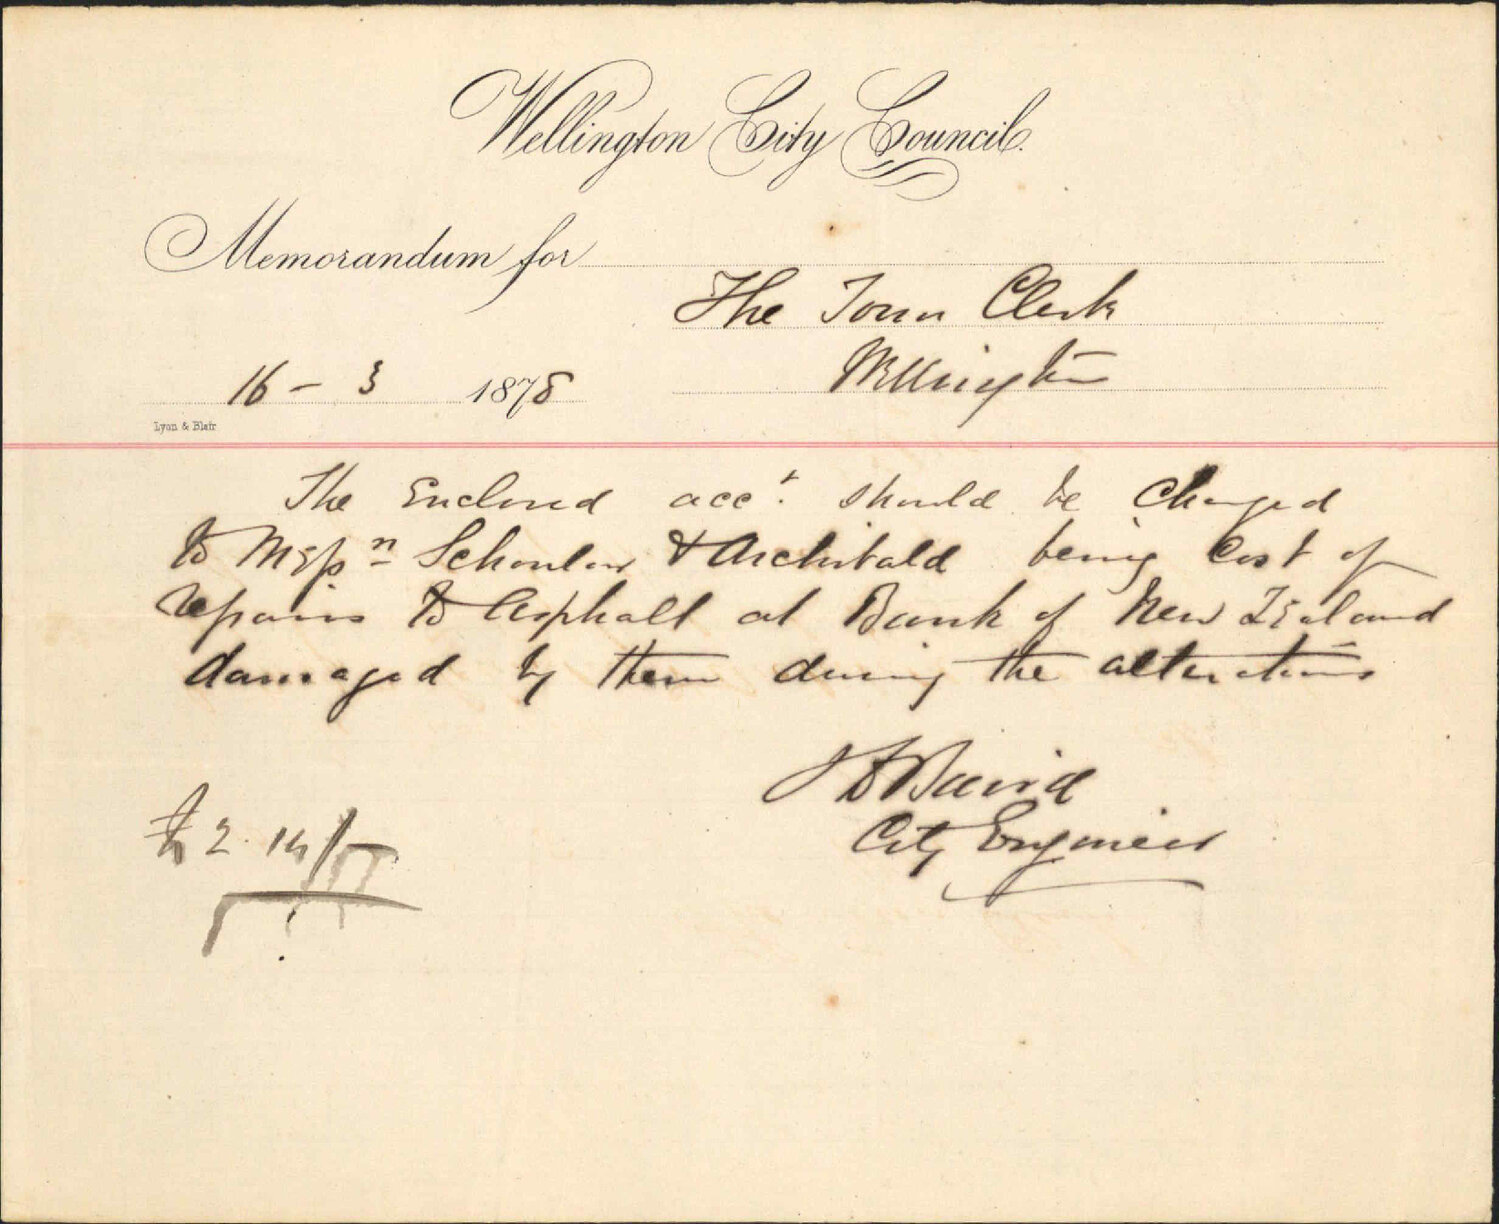 Wellington City Council.
Memorandum for
The Town Clerk
Wellington
16 - 3 1878
Lyon & Blair
The Enclosed acct. should be Charged
to Messrs Schoular & Archibald being Cost of
repairs to Asphalt at Bank of New Zealand
damaged by them during the alterations
Baird
City Engineer
£2. 14/